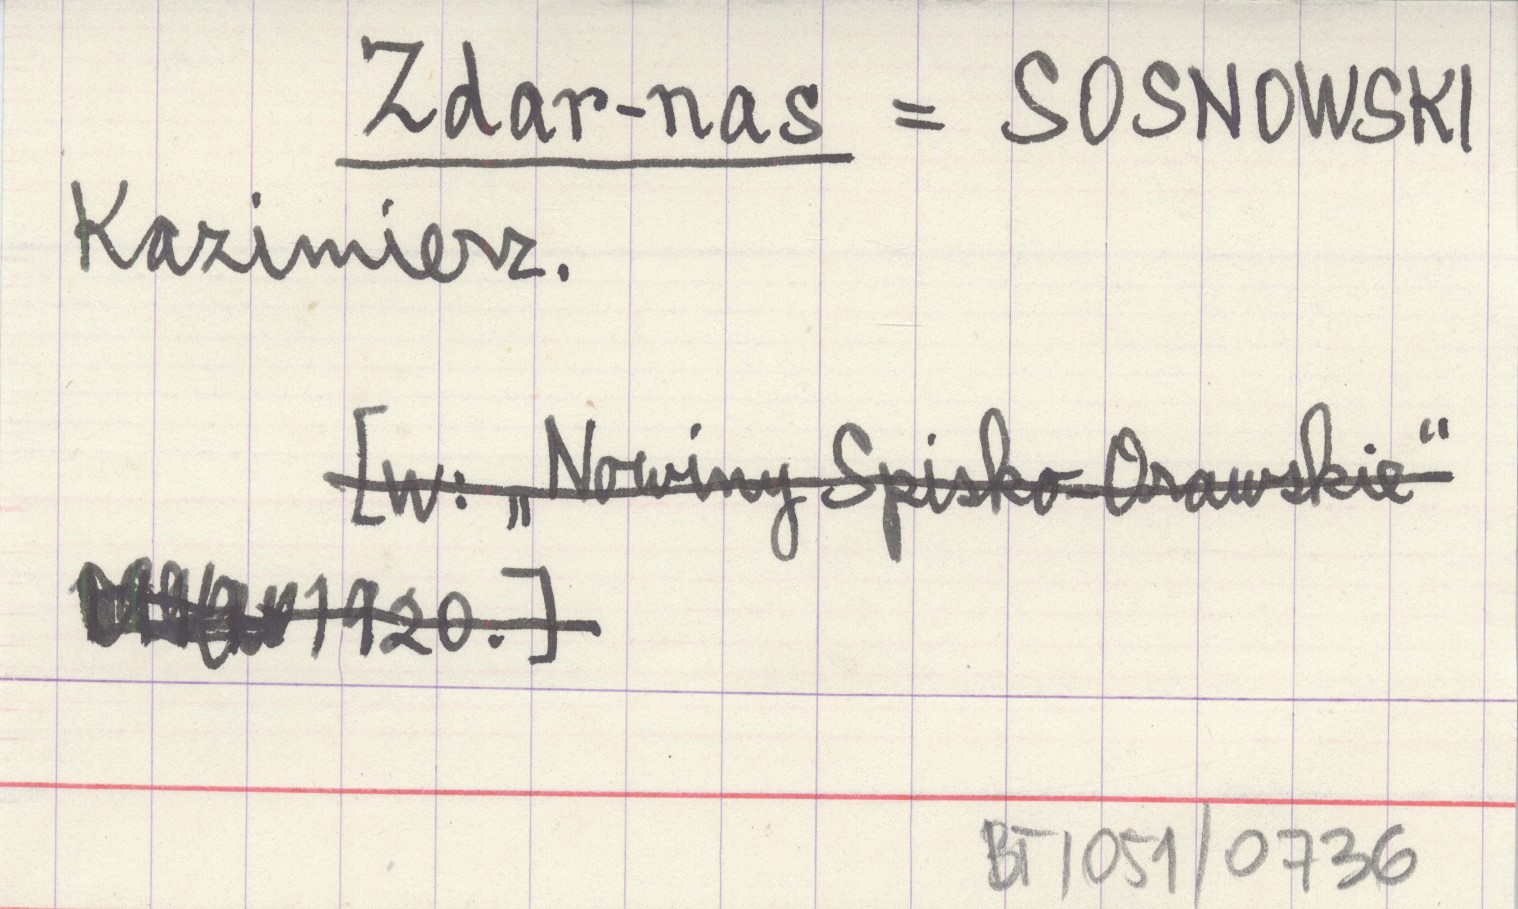 Zdar-nas = SOSNOWSKI
Kazimierz.
[w: „Nowiny Spisko-Orawskie“
1920.]
BT/051/0736